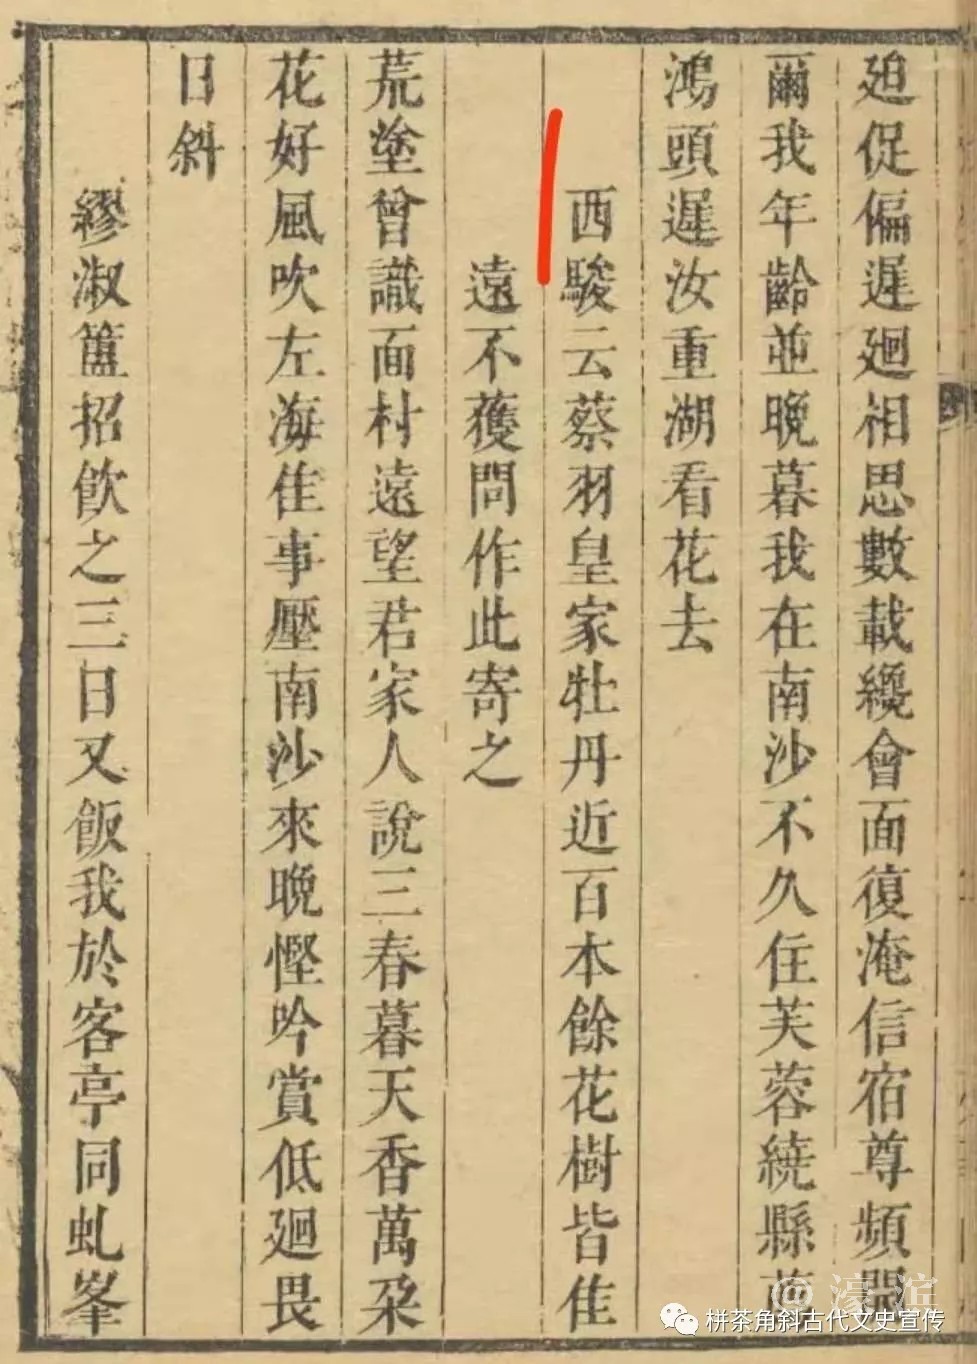 廹促偏遲廻相思數載纔會面復淹信宿尊頻
爾我年齡並晚暮我在南沙不久住芙蓉繞縣
鴻頭遲汝重湖看花去
西駿云蔡羽皇家牡丹近百本餘花樹皆佳
遠不獲問作此寄之
荒塗曾識面村遠望君家人說三春暮天香萬朶
花好風吹左海佳事壓南沙來晚慳吟賞低廻畏
日斜
繆淑簠招飲之三日又飯我於客亭同虬峯
@濠滨
栟茶角斜古代文史宣传